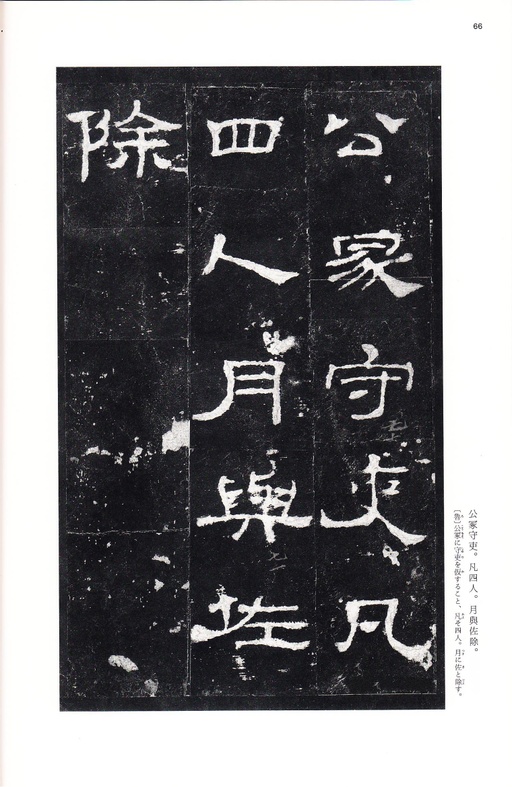 66
公冢守吏凡
四人月與佐
除
公冢守吏。凡四人。月與佐除。
〔魯〕公冢に守吏を仮すること、凡そ四人。月に佐と除す。